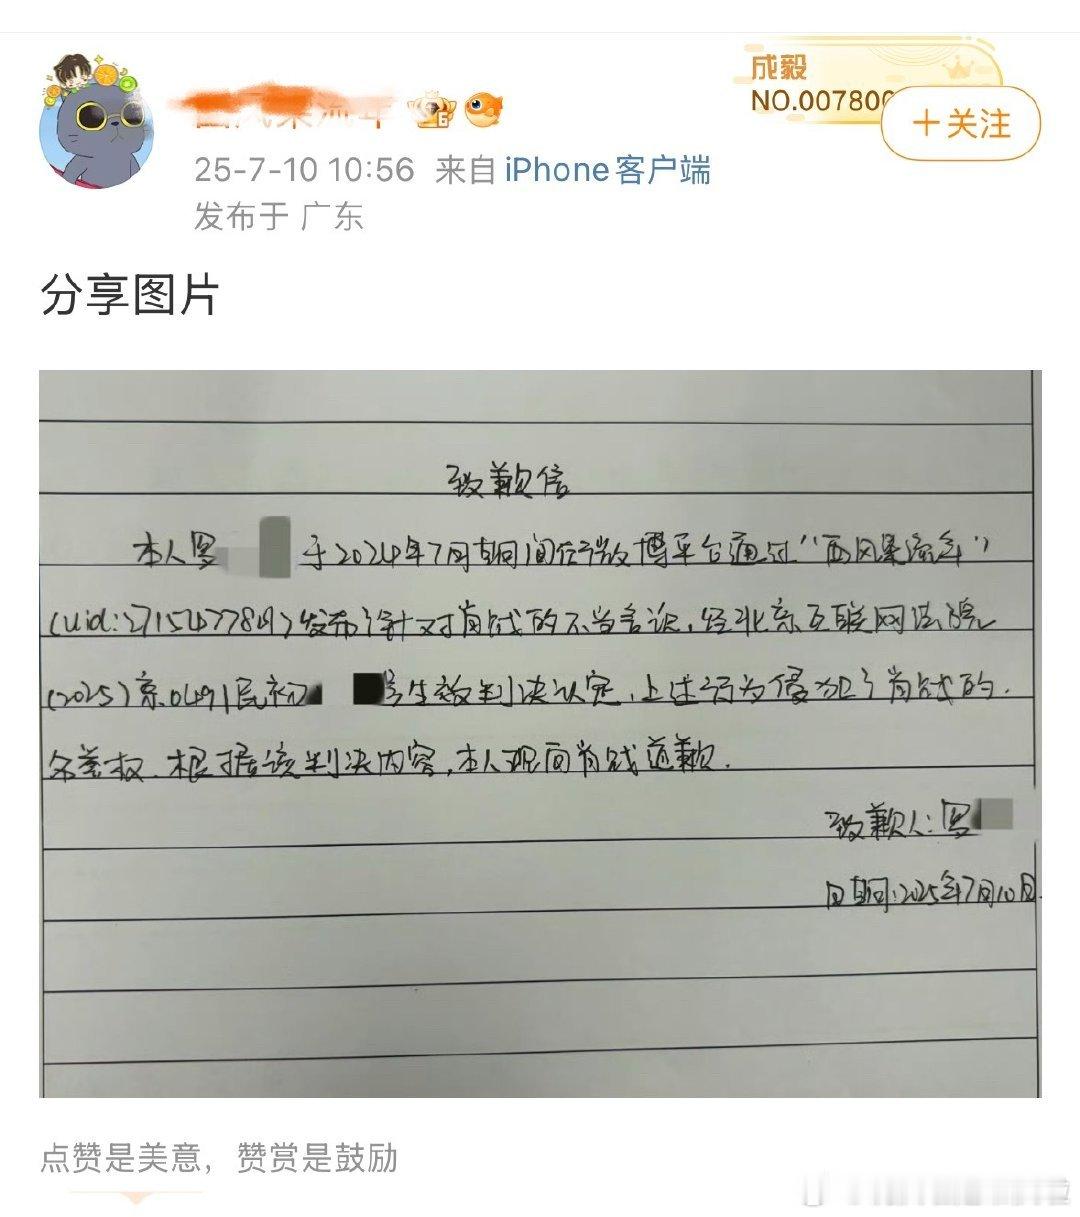 成毅
NO.007800
+关注
25-7-10 10:56 来自 iPhone客户端
发布于 广东
分享图片
致歉信
本人罗 于2024年7月期间在微博平台通过“西风乘流年”
(uid:2715477849)发布针对肖战的不当言论,经北京互联网法院
(2025)京0491民初 号生效判决认定,上述行为侵犯了肖战的
名誉权.根据该判决内容,本人现向肖战道歉.
致歉人:罗
日期:2025年7月10日.
点赞是美意,赞赏是鼓励